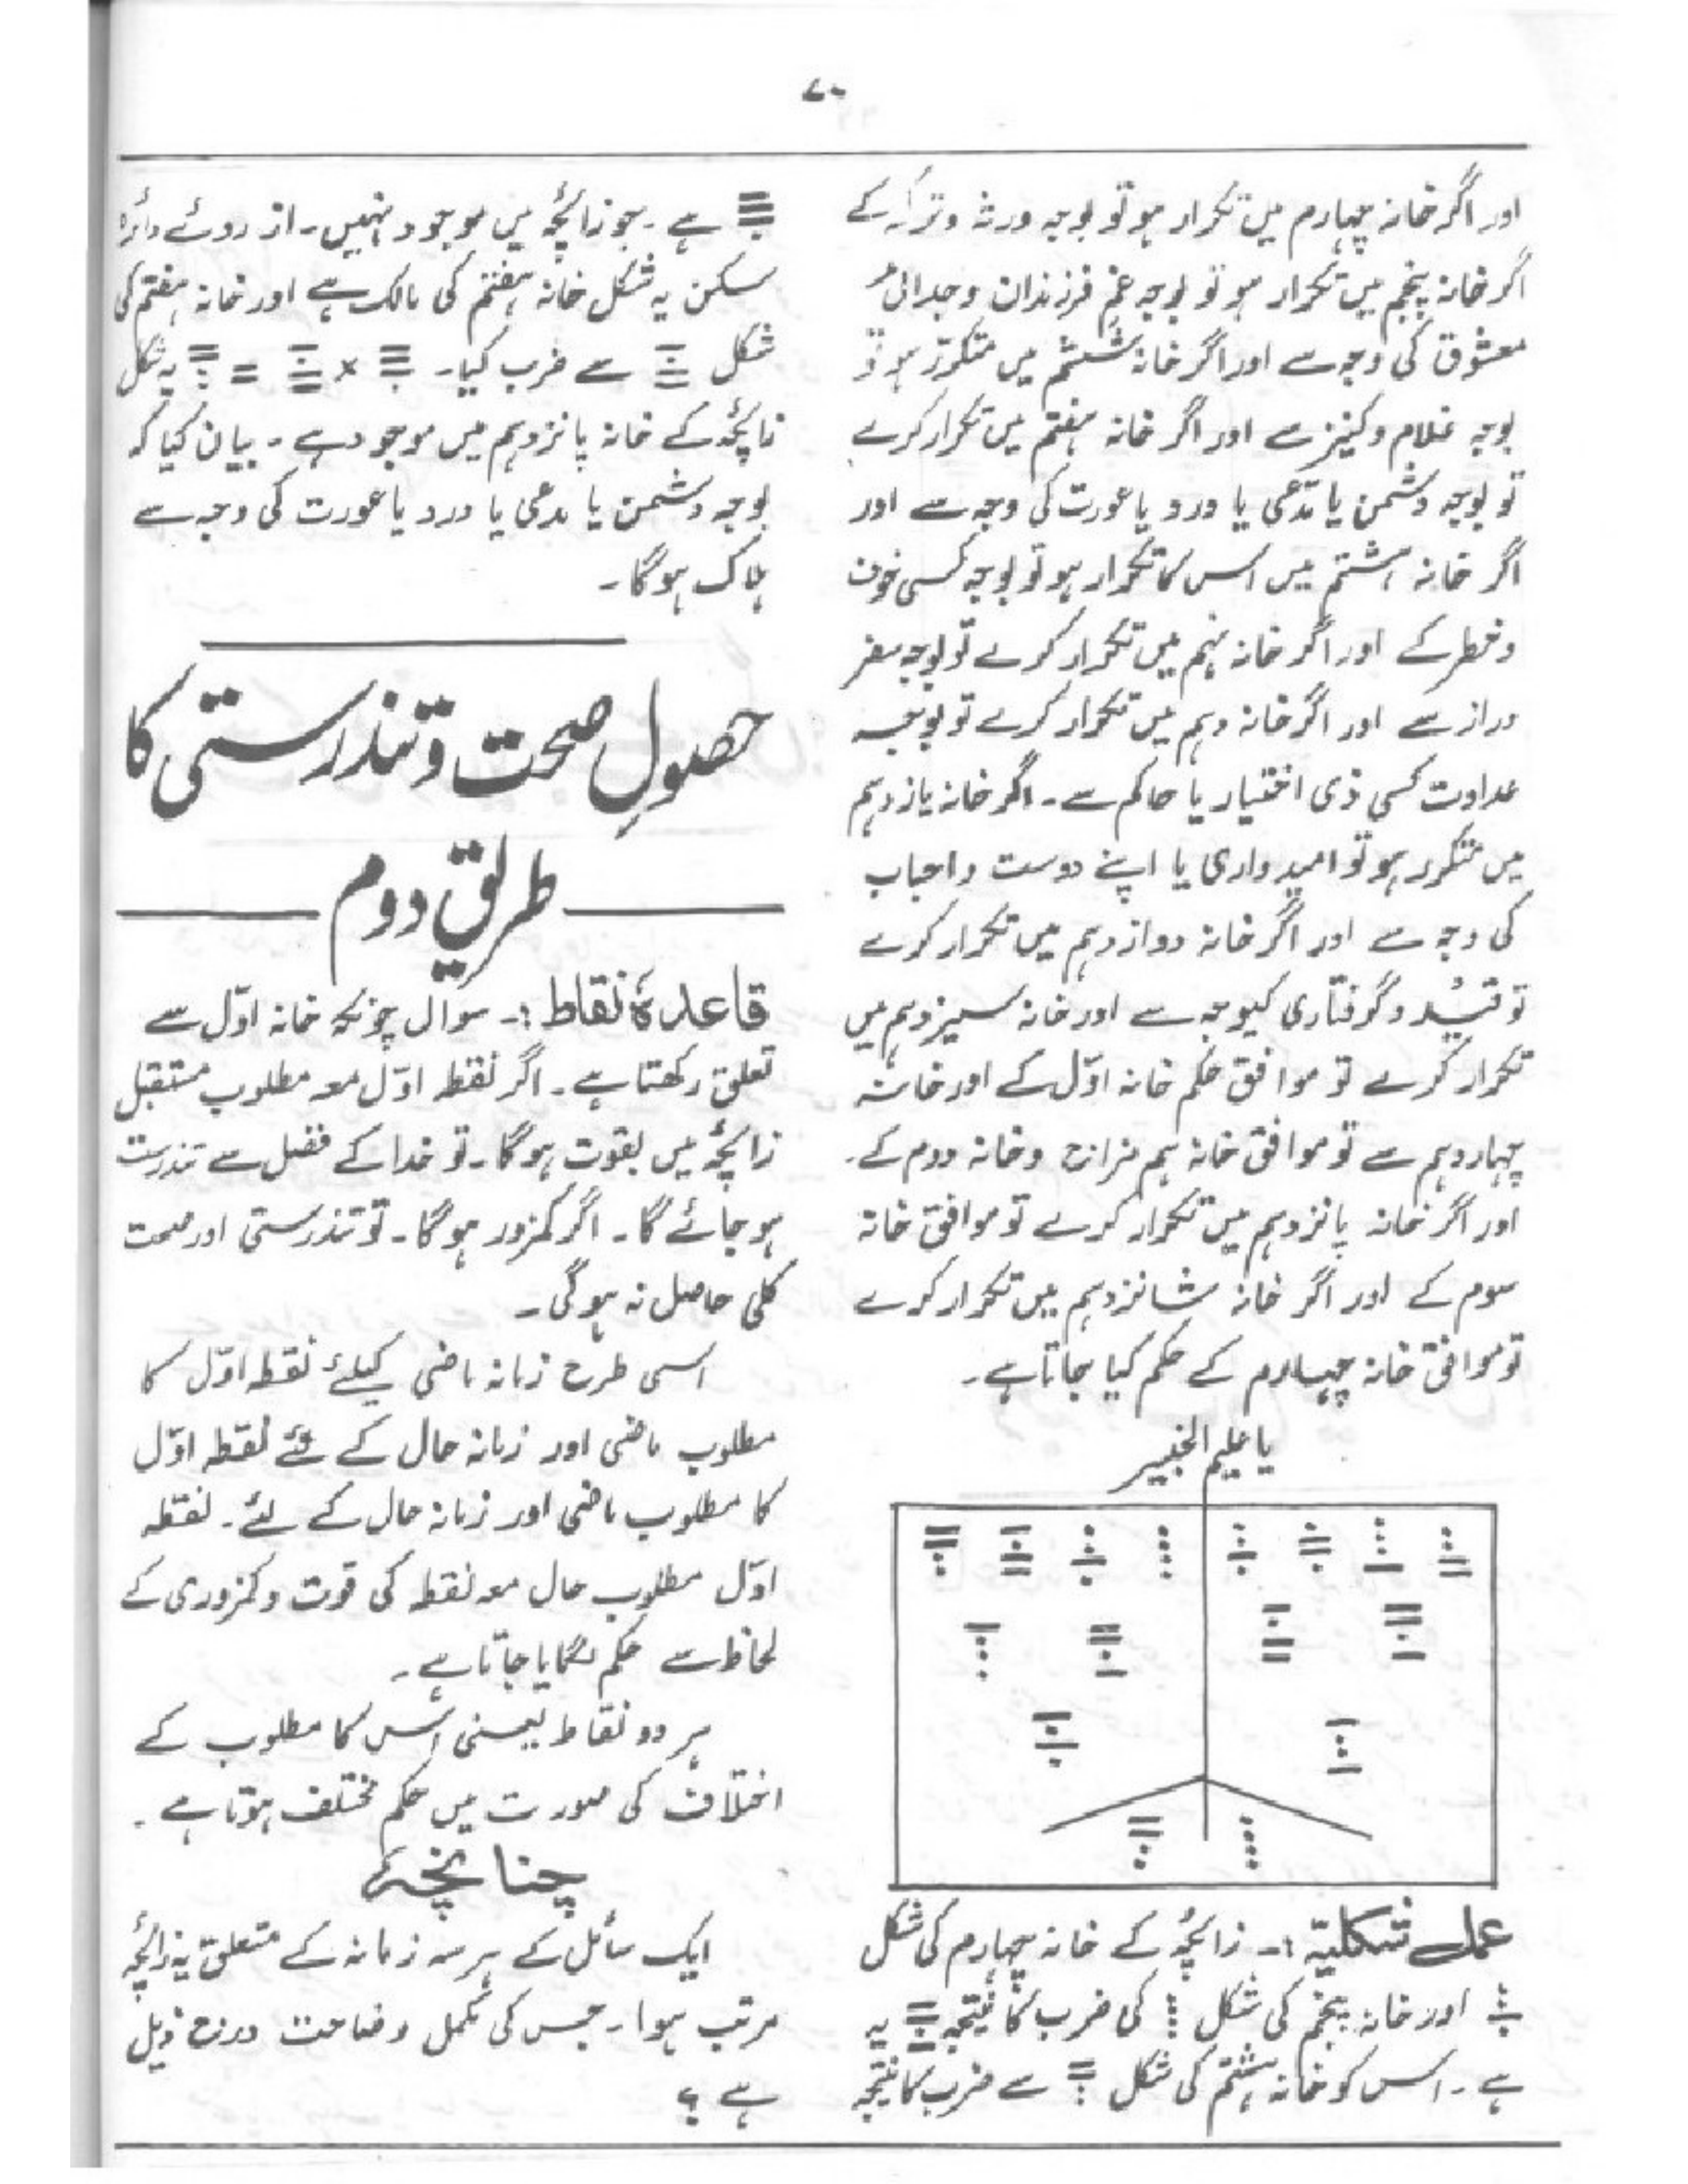 ۷۰
اور اگر خانہ چہارم میں تکرار ہو تو بوجہ ورثہ وترکہ کے
اگر خانہ پنجم میں تکرار ہو تو بوجہ غم فرزندان وجدائی
معشوق کی وجہ سے اور اگر خانہ ششم میں متکرر ہو تو
بوجہ غلام وکنیز سے اور اگر خانہ ہفتم میں تکرار کرے
تو بوجہ دشمن یا مدّعی یا درد یا عورت کی وجہ سے اور
اگر خانہ ہشتم میں اس کا تکرار ہو تو بوجہ کسی خوف
وخطر کے اور اگر خانہ نہم میں تکرار کرے تو بوجہ سفر
دراز سے اور اگر خانہ دہم میں تکرار کرے تو بوجہ
عداوت کسی ذی اختیار یا حاکم سے۔ اگر خانہ یازدہم
میں متکرر ہو تو امیدواری یا اپنے دوست واحباب
کی وجہ سے اور اگر خانہ دوازدہم میں تکرار کرے
تو قید وگرفتاری کیوجہ سے اور خانہ سیزدہم میں
تکرار کرے تو موافق حکم خانہ اوّل کے اور خانہ
چہاردہم سے تو موافق خانہ ہم مزاج وخانہ دوم کے۔
اور اگر خانہ پانزدہم میں تکرار کرے تو موافق خانہ
سوم کے اور اگر خانہ شانزدہم میں تکرار کرے
تو موافق خانہ چہارم کے حکم کیا جاتا ہے۔
یا علیم الخبیر
عمل شکلیّہ :۔ زائچہ کے خانہ چہارم کی شکل
اور خانہ پنجم کی شکل کی ضرب کا نتیجہ یہ
ہے۔ اس کو خانہ ہشتم کی شکل سے ضرب کا نتیجہ
ہے۔ جو زائچہ میں موجود نہیں۔ از روئے دائرہ
سکن یہ شکل خانہ ہفتم کی مالک ہے اور خانہ ہفتم کی
شکل سے ضرب کیا۔ × = یہ شکل
زائچہ کے خانہ پانزدہم میں موجود ہے۔ بیان کیا کہ
بوجہ دشمن یا مدعی یا درد یا عورت کی وجہ سے
ہلاک ہوگا۔
حصولِ صحت وتندرستی کا
طریق دوم
قاعدہٴ نقاط :۔ سوال چونکہ خانہ اوّل سے
تعلق رکھتا ہے۔ اگر نقطہ اوّل معہ مطلوب مستقبل
زائچہ میں بقوت ہوگا۔ تو خدا کے فضل سے تندرست
ہو جائے گا۔ اگر کمزور ہوگا۔ تو تندرستی اور صحت
کلی حاصل نہ ہوگی۔
اسی طرح زمانہ ماضی کیلئے نقطہ اوّل کا
مطلوب ماضی اور زمانہ حال کے لئے نقطہ اوّل
کا مطلوب ماضی اور زمانہ حال کے لئے۔ نقطہ
اوّل مطلوب حال معہ نقطہ کی قوت وکمزوری کے
لحاظ سے حکم لگایا جاتا ہے۔
ہر دو نقاط یعنی اس کا مطلوب کے
اختلاف کی صورت میں حکم مختلف ہوتا ہے۔
چنانچہ
ایک سائل کے ہر سہ زمانہ کے متعلق یہ زائچہ
مرتب ہوا۔ جس کی مکمل وضاحت درج ذیل
ہے ؟